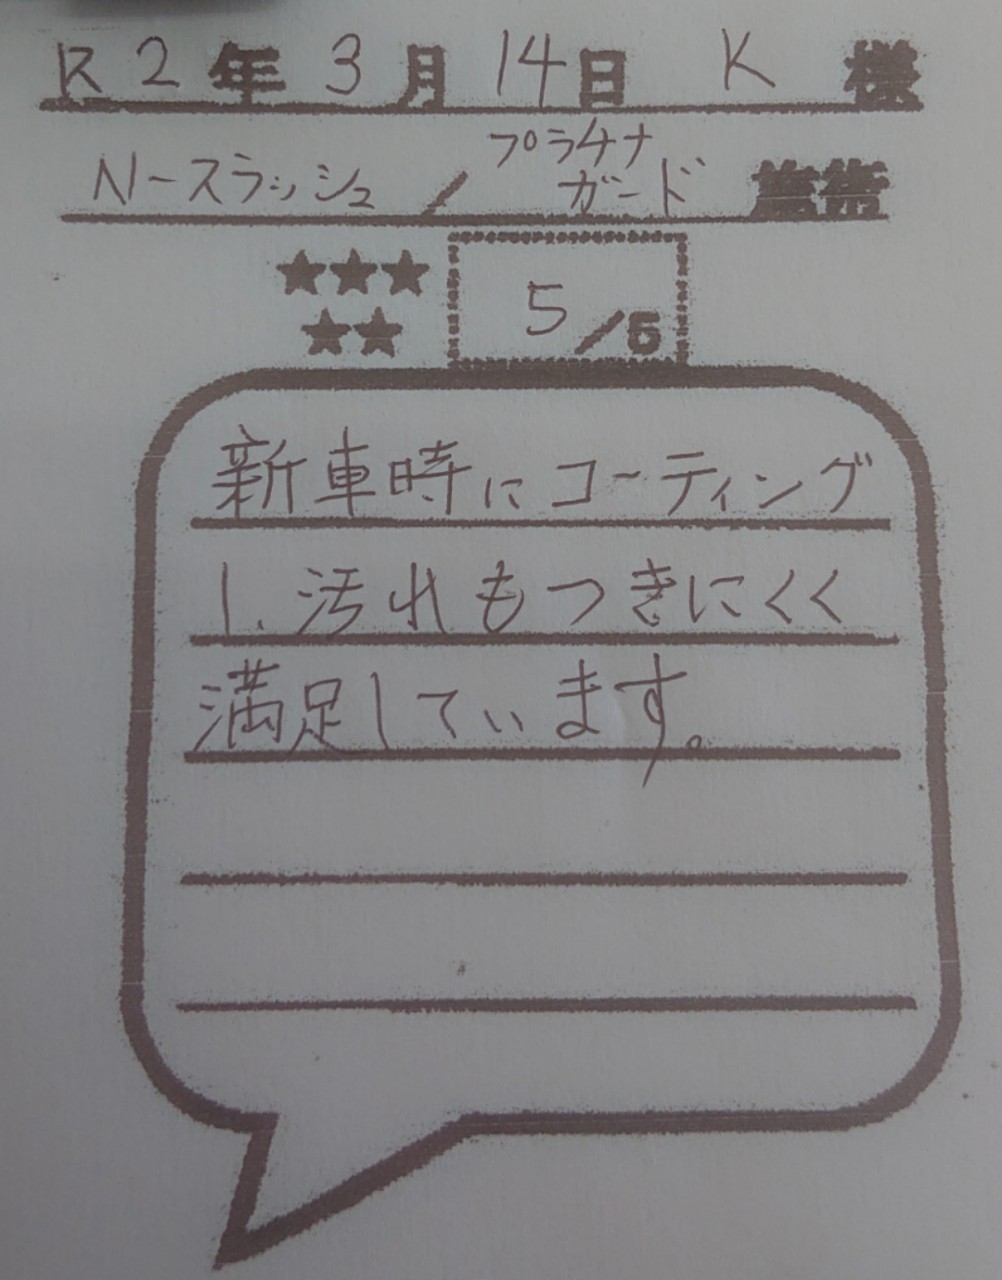 R2年3月14日 K 様
N-スラッシュ / プラチナ
ガード 施術
★★★
★★
5/5
新車時にコーティング
し、汚れもつきにくく
満足しています。